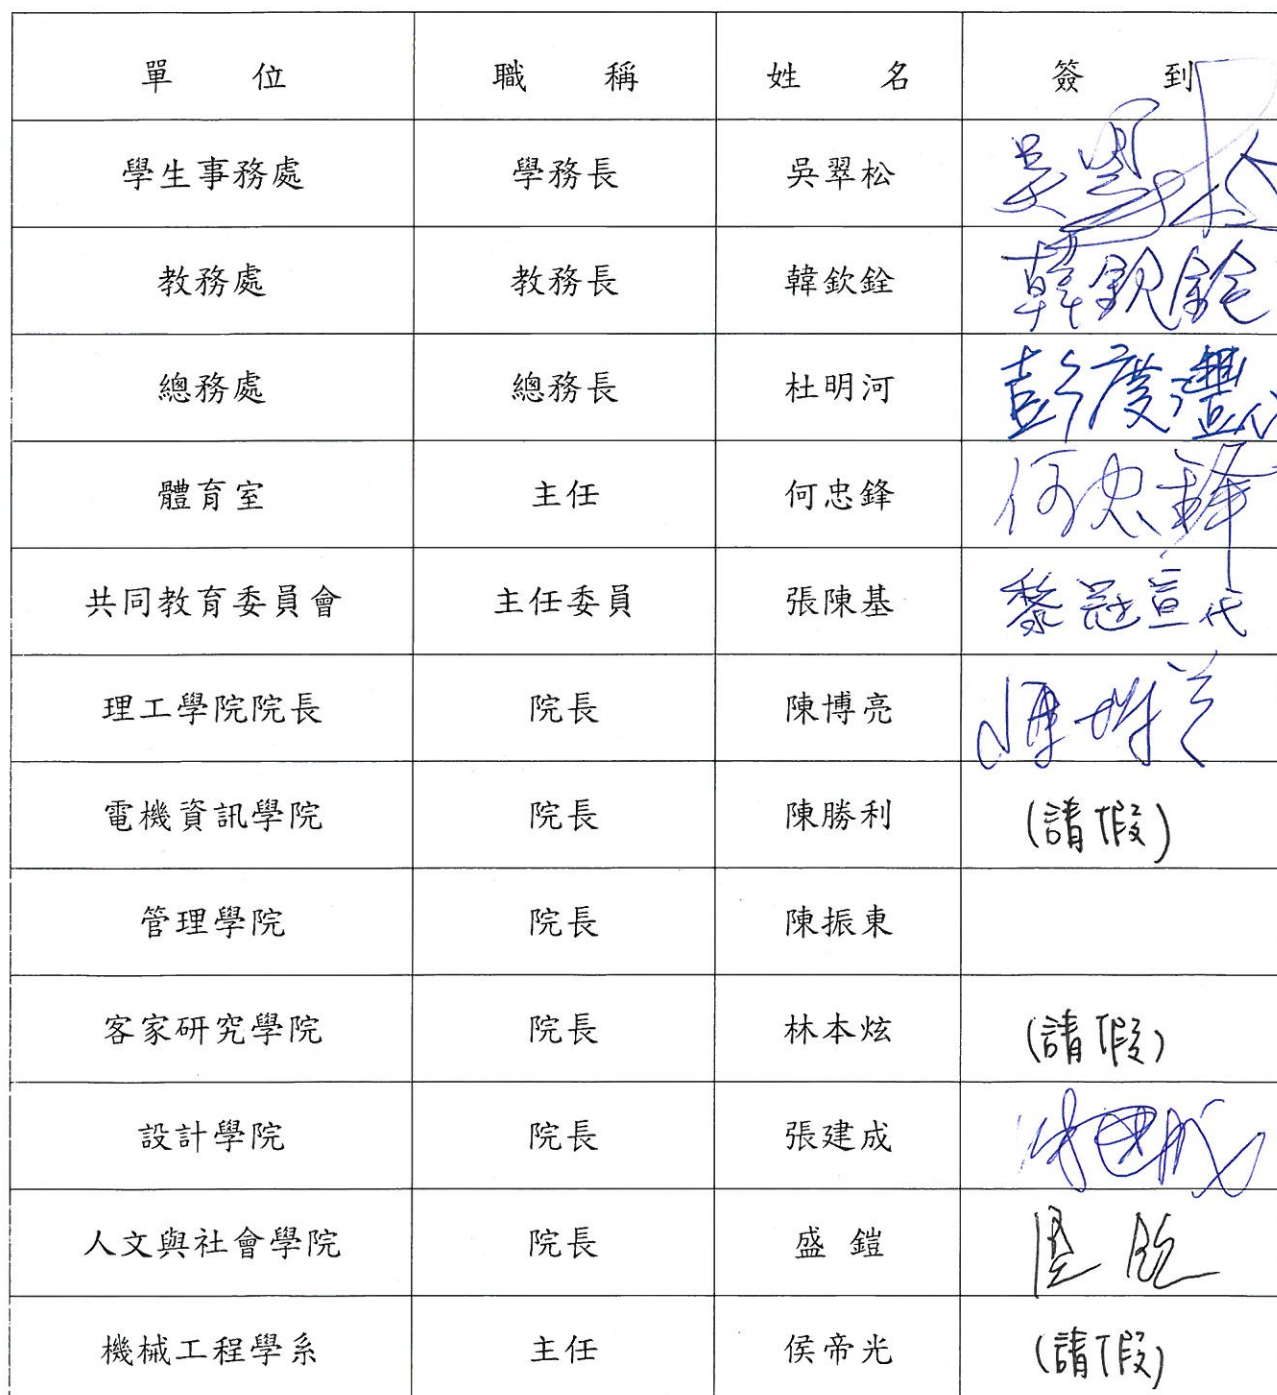 單位 職稱 姓名 簽到
學生事務處 學務長 吳翠松 吳翠松
教務處 教務長 韓欽銓 韓欽銓
總務處 總務長 杜明河 彭度灃代
體育室 主任 何忠鋒 何忠鋒
共同教育委員會 主任委員 張陳基 黎冠宣代
理工學院院長 院長 陳博亮
電機資訊學院 院長 陳勝利 (請假)
管理學院 院長 陳振東
客家研究學院 院長 林本炫 (請假)
設計學院 院長 張建成
人文與社會學院 院長 盛鎧
機械工程學系 主任 侯帝光 (請假)